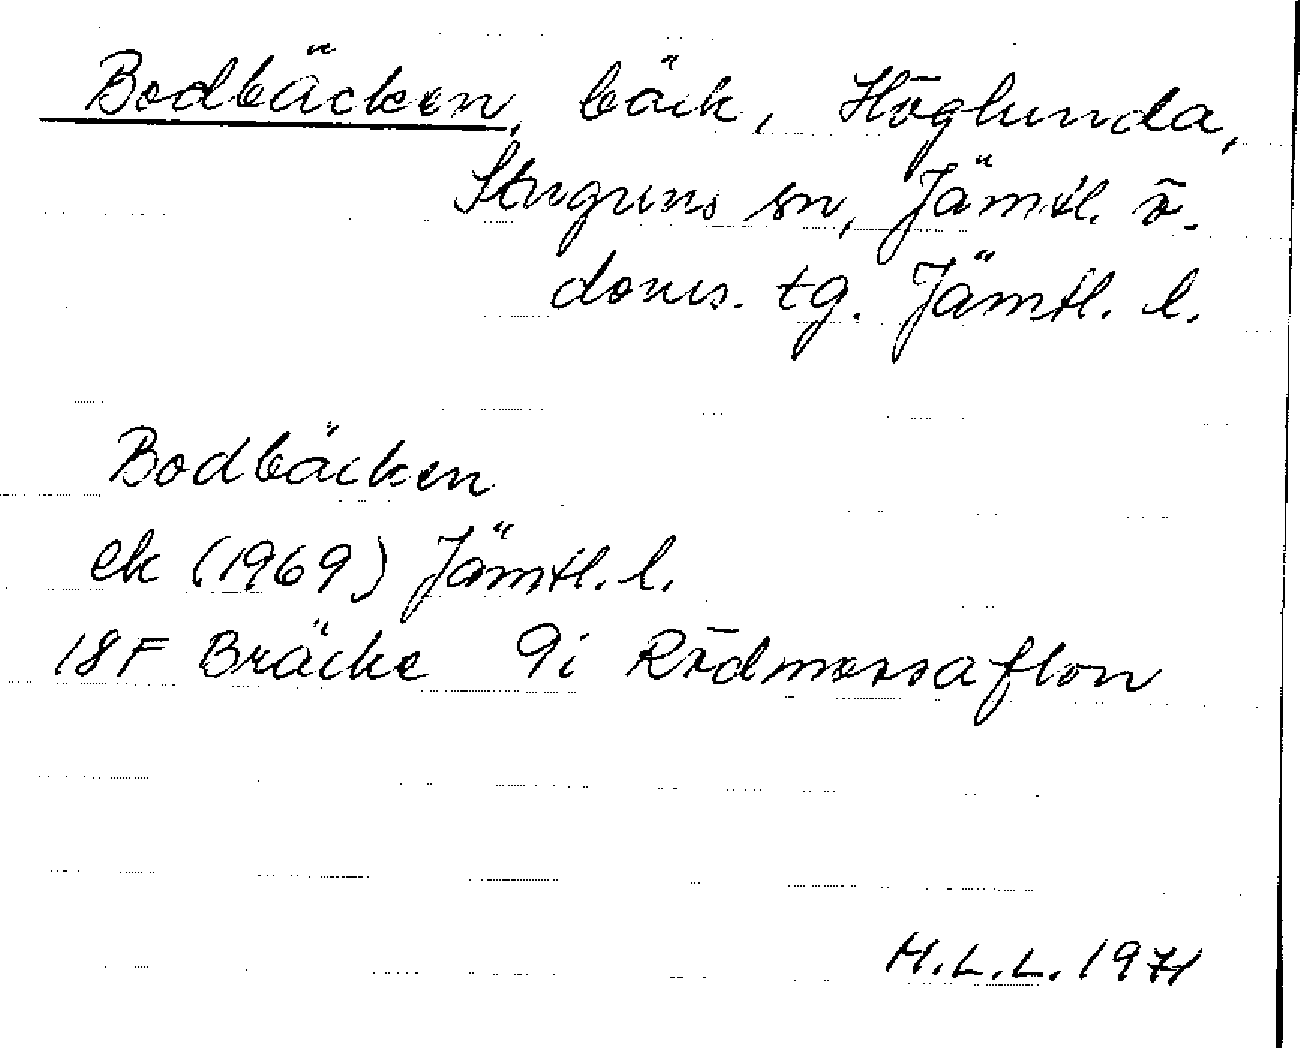 Bodbäcken, bäck, Höglunda,
Stuguns sn, Jämtl. ö.
doms. tg. Jämtl. l.
Bodbäcken
ek (1969) Jämtl. l.
18F Bräcke 9i Rödmossaflon
M.L.L. 1971